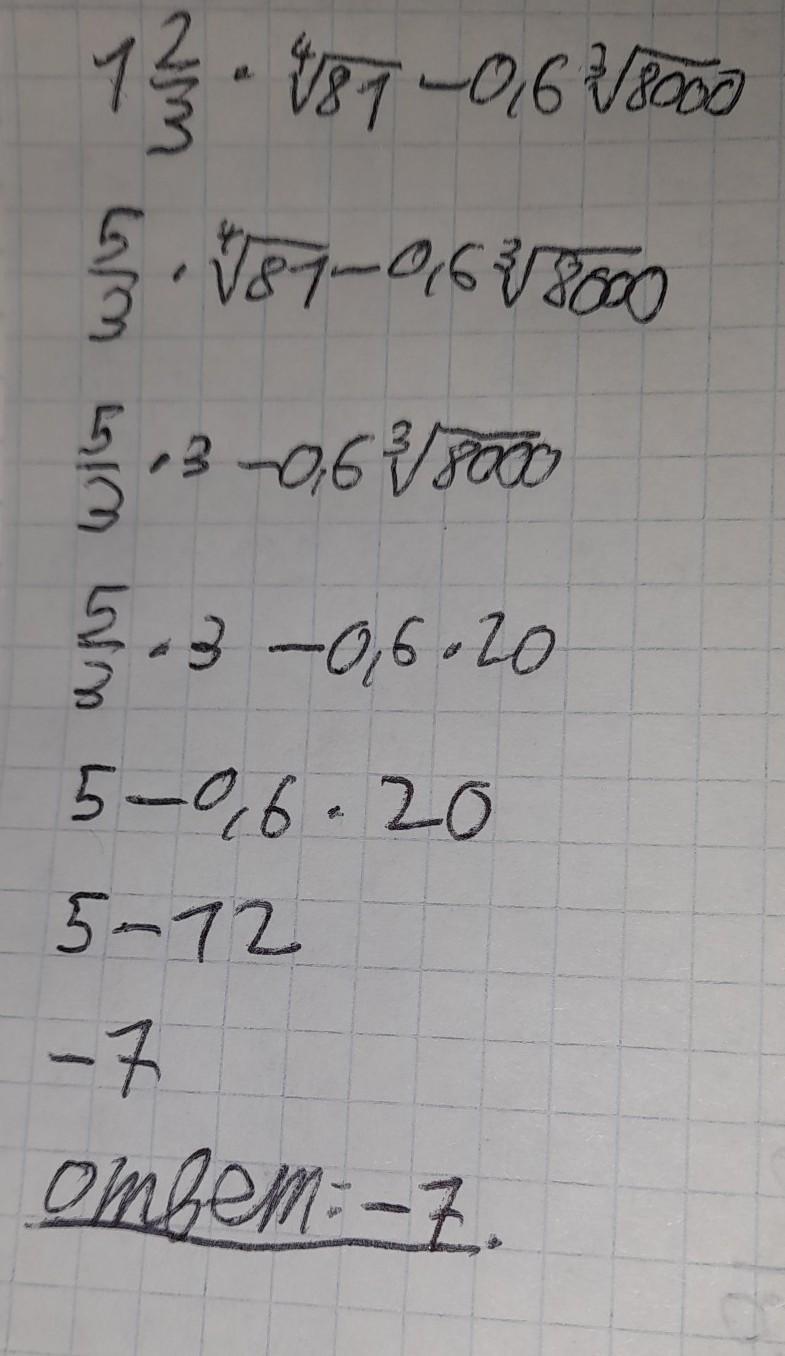 1 2/3 · ∜81 − 0,6 ∛8000
5/3 · ∜81 − 0,6 ∛8000
5/3 · 3 − 0,6 ∛8000
5/3 · 3 − 0,6 · 20
5 − 0,6 · 20
5 − 12
−7
ответ: −7.